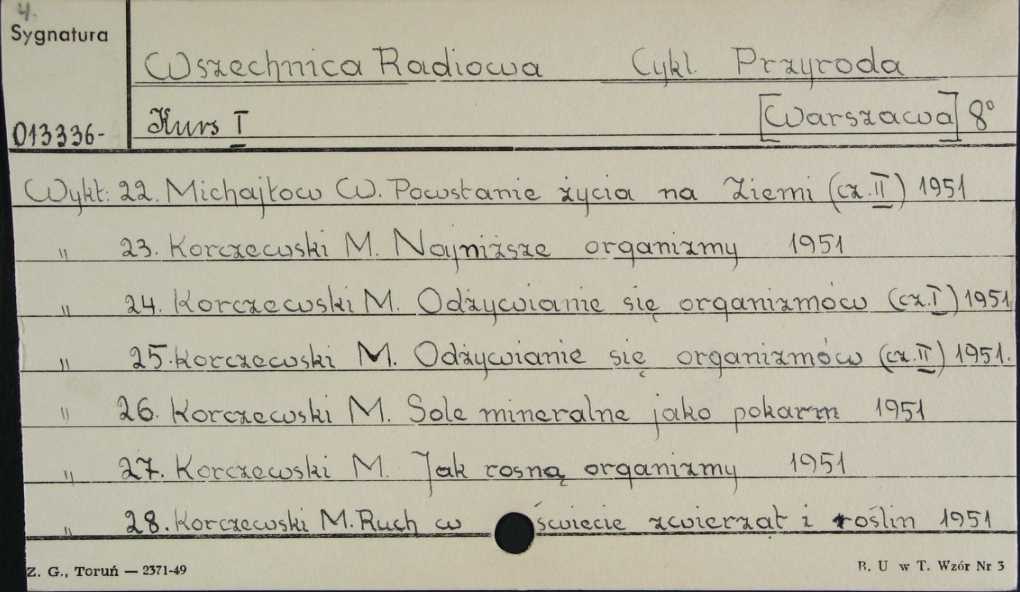 4.
Sygnatura
Wszechnica Radiowa Cykl. Przyroda
013336- Kurs I [Warszawa] 8°
Wykł: 22. Michajłow W. Powstanie życia na Ziemi (cz. II) 1951
" 23. Korczewski M. Najniższe organizmy 1951
" 24. Korczewski M. Odżywianie się organizmów (cz. I) 1951
" 25. Korczewski M. Odżywianie się organizmów (cz. II) 1951.
" 26. Korczewski M. Sole mineralne jako pokarm 1951
" 27. Korczewski M. Jak rosną organizmy 1951
" 28. Korczewski M. Ruch w świecie zwierząt i roślin 1951
Z. G., Toruń — 2371-49 B. U w T. Wzór Nr 3